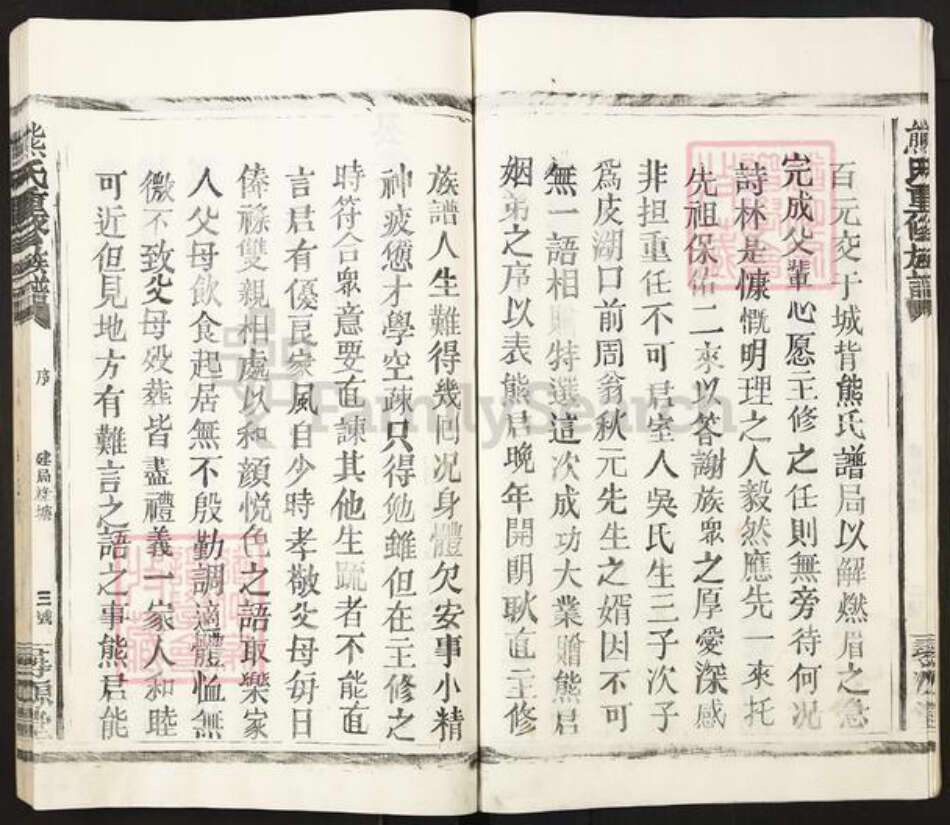 熊氏重修族譜
百元交于城背熊氏譜局以解燃眉之急
完成父輩心愿主修之任則無旁待何况
詩林是慷慨明理之人毅然應先一來托
先祖保佑二來以答謝族眾之厚愛深感
非担重任不可君室人吳氏生三子次子
爲皮湖口前周翁秋元先生之婿因不可
無一語相贈特選這次成功大業贈熊君
姻弟之序以表熊君晚年開明耿直主修
族譜人生難得幾回况身體欠安事小精
神疲憊才學空疎只得勉雖但在主修之
時符合眾意要直諫其他生疏者不能直
言君有優良家風自少時孝敬父母每日
傣祿雙親相處以和顏悅色之語取樂家
人父母飲食起居無不殷勤調適體恤無
微不致父母殁葬皆盡禮義一家人和睦
可近但見地方有難言之語之事熊君能
熊氏重修族譜
序
建局
三號
FamilySearch